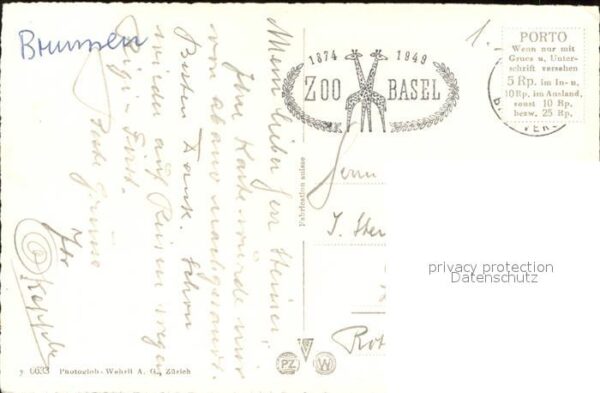 Brunnen
1.-
1874 1949
ZOO BASEL
PORTO
Wenn nur mit
Gruss u. Unter-
schrift versehen
5 Rp. im In- u.
10 Rp. im Ausland,
sonst 10 Rp.
bezw. 25 Rp.
Mein lieber Herr Steiner,
Ihre Karte wurde mir
von nachgesandt.
Besten Dank. Schon
wieder auf Reisen wegen
Rigi-First.
Beste Grüsse
Ihr
Fabrication suisse
Herrn
J. Stei
Rot
privacy protection
Datenschutz
PZ W
6633 Photoglob-Wehrli A. G., Zürich